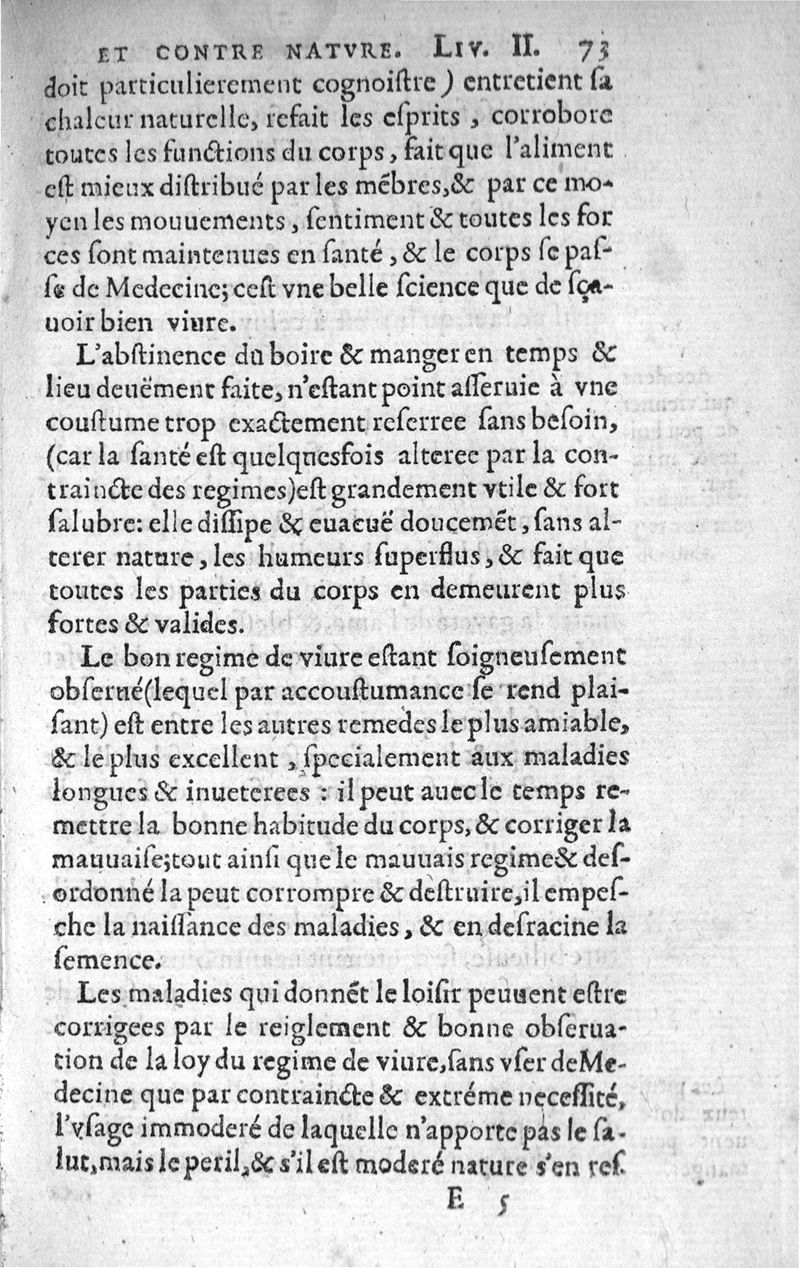 ET CONTRE NATVRE. LIV. II. 73
doit particulierement cognoiſtre) entretient ſa
chaleur naturelle, refait les eſprits, corrobore
toutes les functions du corps, fait que l'aliment
eſt mieux diſtribué par les mēbres, & par ce mo-
yen les mouuements, ſentiment & toutes les for
ces ſont maintenues en ſanté, & le corps ſe paſ-
ſe de Medecine; ceſt vne belle ſcience que de ſça-
uoir bien viure.
L'abſtinence du boire & manger en temps &
lieu deuëment faite, n'eſtant point aſſeruie à vne
couſtume trop exactement referree ſans beſoin,
(car la ſanté eſt quelquesfois alteree par la con-
traincte des regimes) eſt grandement vtile & fort
ſalubre: elle diſſipe & euacuë doucemēt, ſans al-
terer nature, les humeurs ſuperflus, & fait que
toutes les parties du corps en demeurent plus
fortes & valides.
Le bon regime de viure eſtant ſoigneuſement
obſerué (lequel par accouſtumance ſe rend plai-
ſant) eſt entre les autres remedes le plus amiable,
& le plus excellent, ſpecialement aux maladies
longues & inueterees : il peut auec le temps re-
mettre la bonne habitude du corps, & corriger la
mauuaiſe; tout ainſi que le mauuais regime & deſ-
ordonné la peut corrompre & deſtruire, il empeſ-
che la naiſſance des maladies, & en deſracine la
ſemence.
Les maladies qui donnēt le loiſir peuuent eſtre
corrigees par le reiglement & bonne obſerua-
tion de la loy du regime de viure, ſans vſer de Me-
decine que par contraincte & extréme neceſſité,
l'vſage immoderé de laquelle n'apporte pas le ſa-
lut, mais le peril, & s'il eſt moderé nature s'en reſ.
E 5